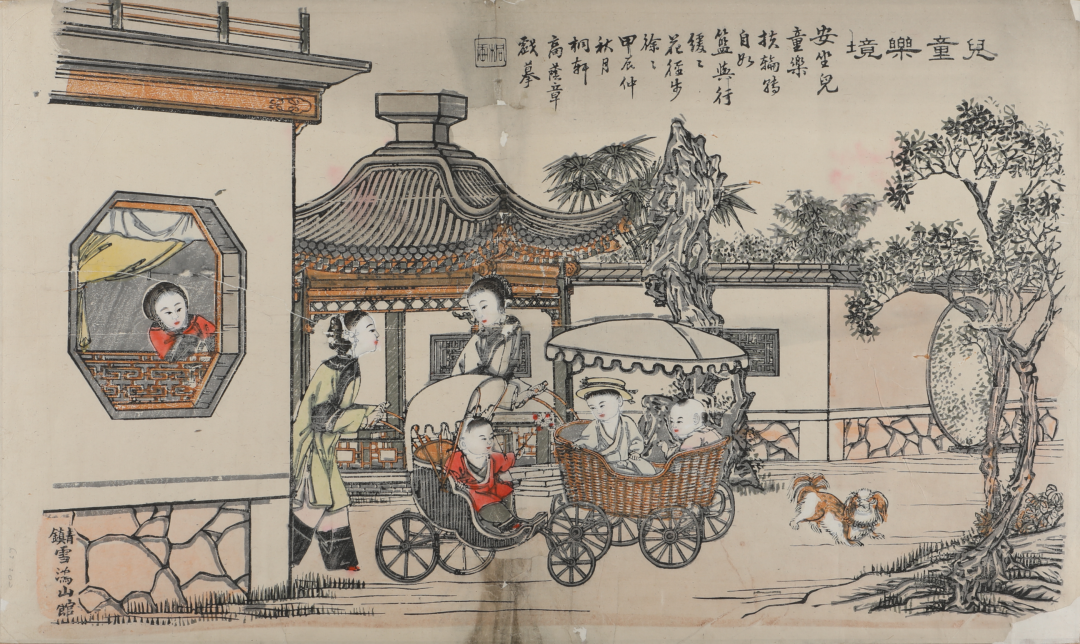 兒童樂境
安坐兒
童樂
扶輪
自如
籃輿行
緩〻
花徑步
徐〻
甲辰仲
秋月
桐軒
高蔭章
戲摹
青鎮雪鴻山館